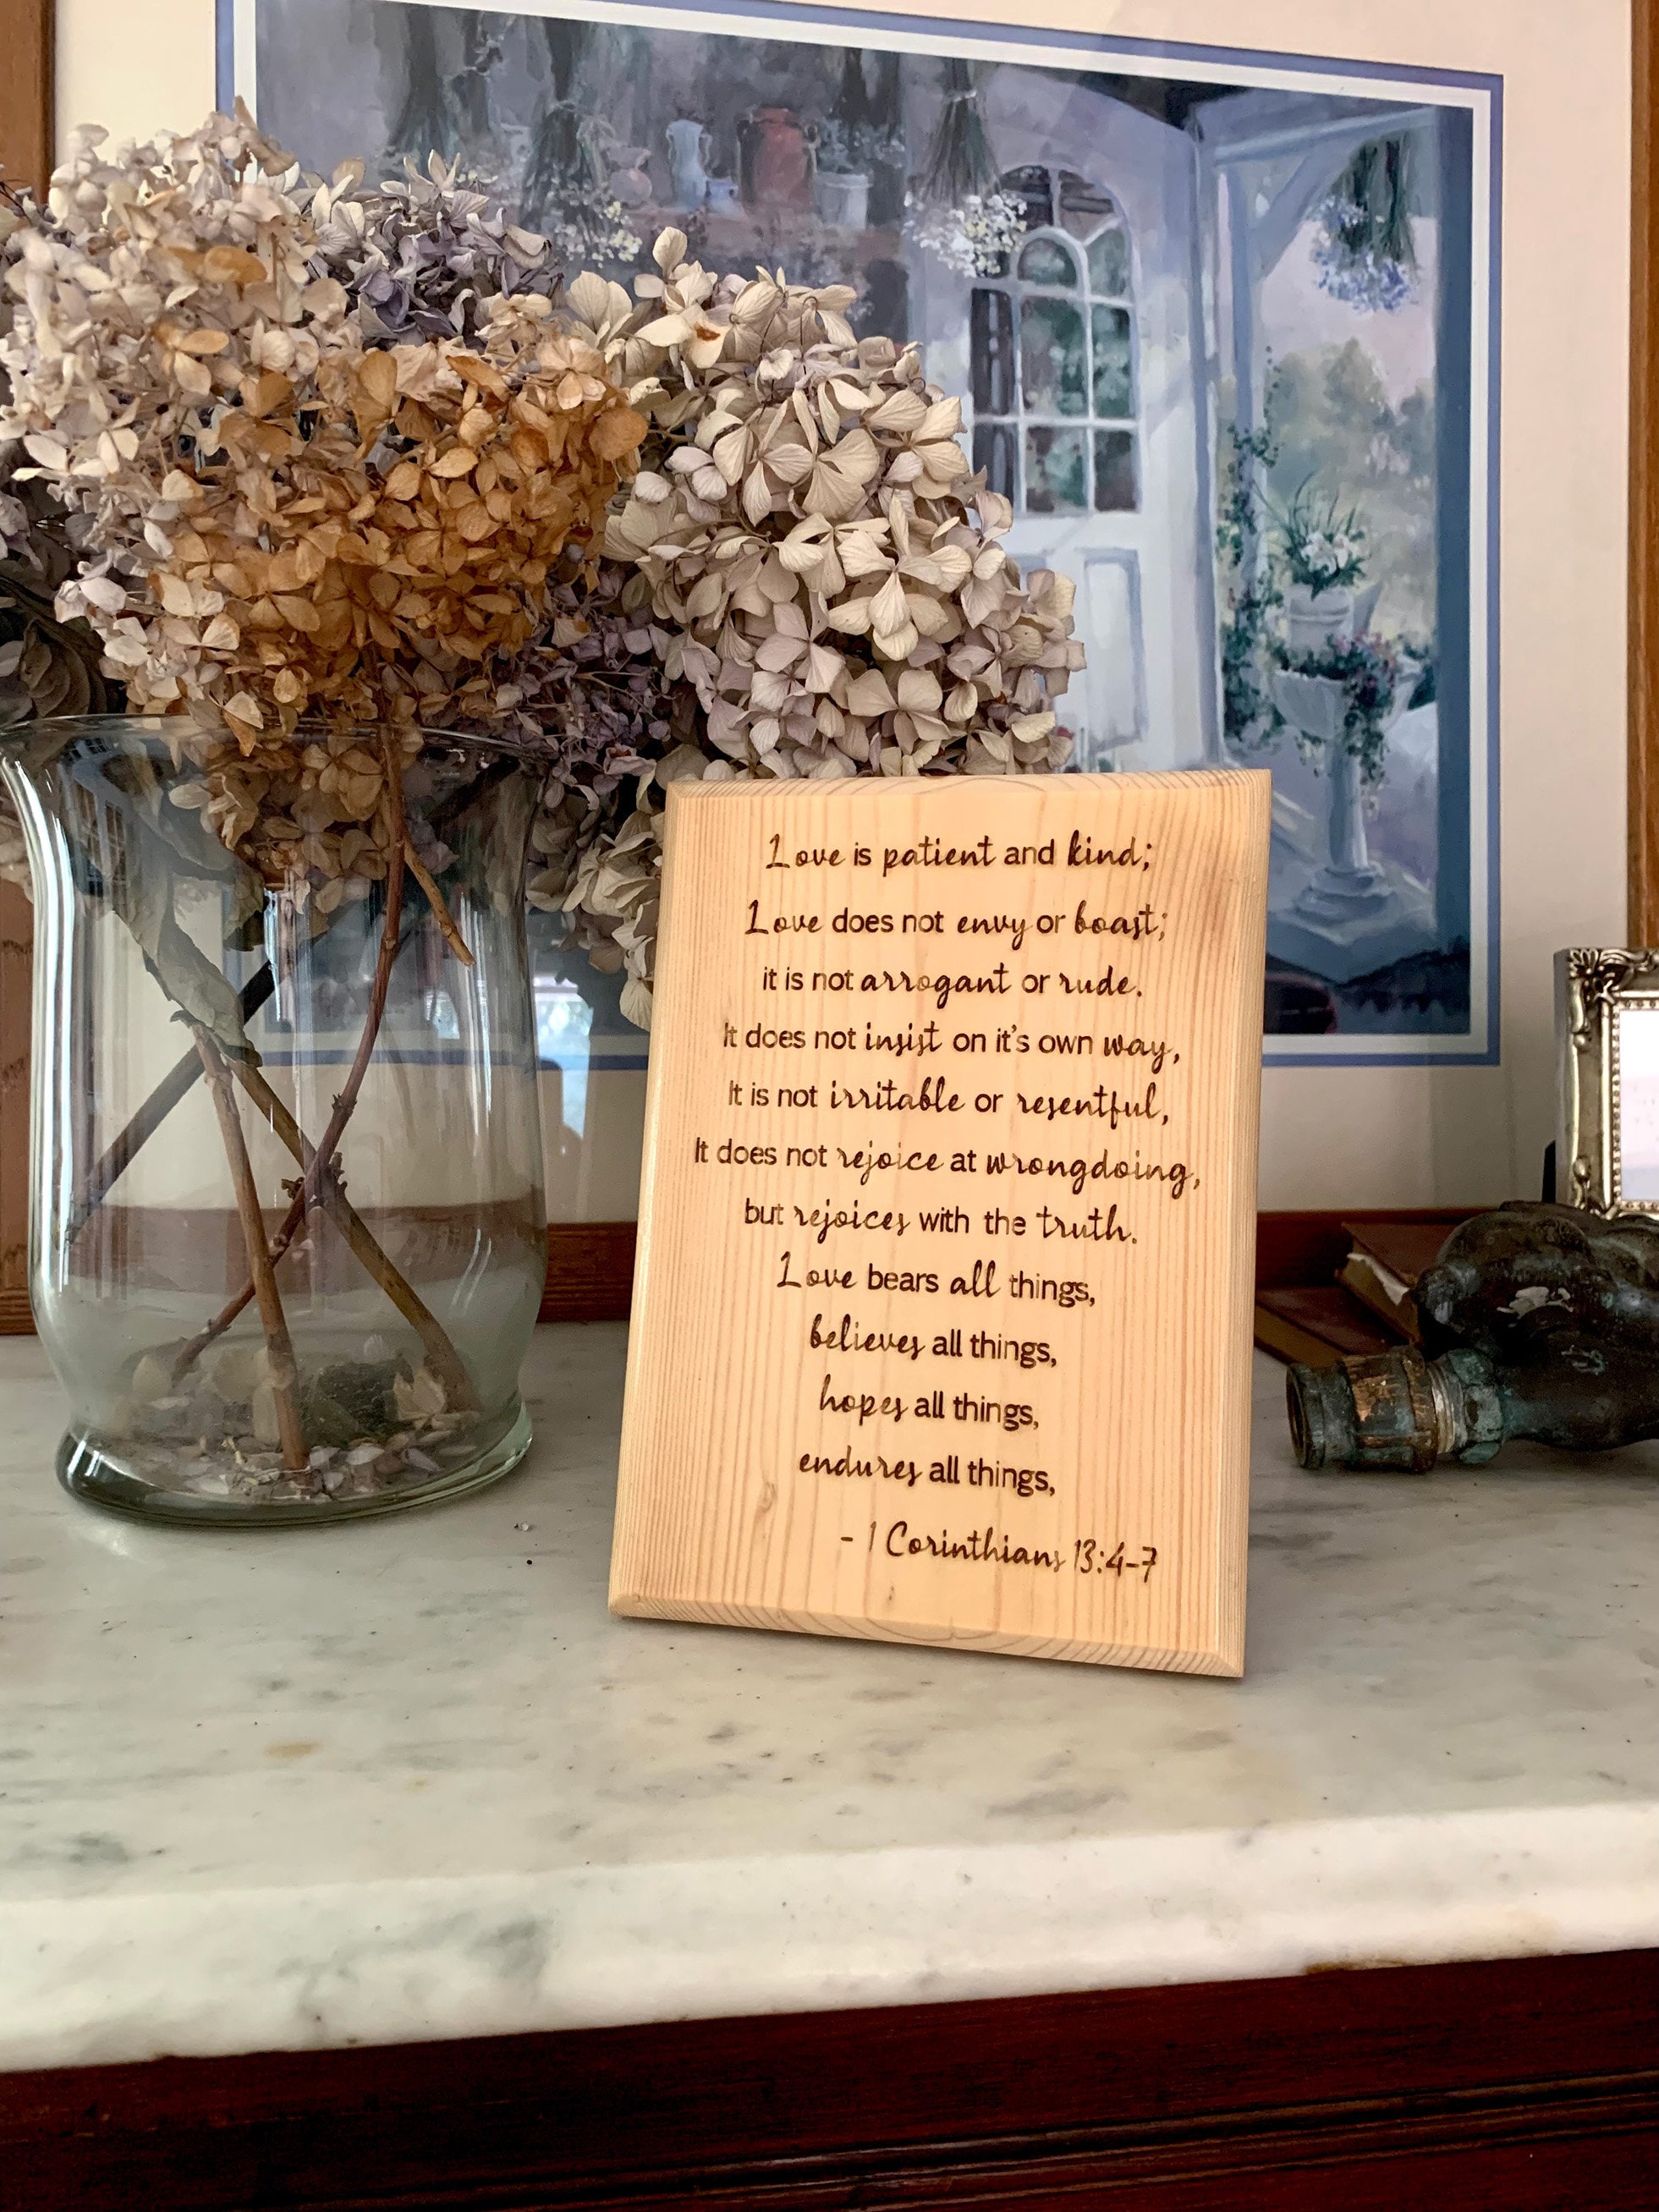 Love is patient and kind;
Love does not envy or boast;
it is not arrogant or rude.
It does not insist on it's own way,
It is not irritable or resentful,
It does not rejoice at wrongdoing,
but rejoices with the truth.
Love bears all things,
believes all things,
hopes all things,
endures all things,
- 1 Corinthians 13:4-7